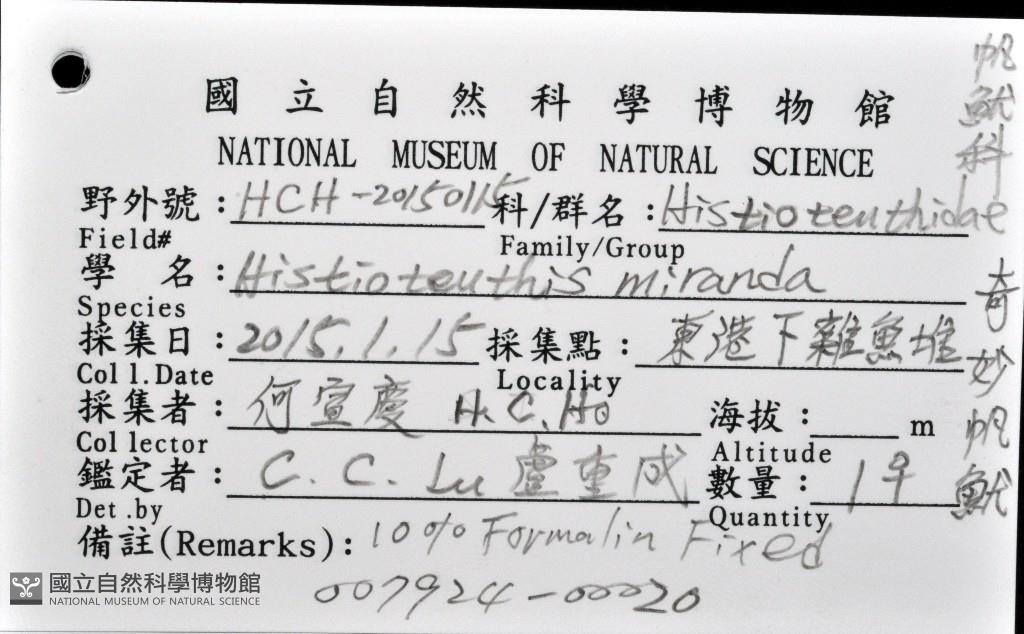 國立自然科學博物館
NATIONAL MUSEUM OF NATURAL SCIENCE
野外號：HCH-20150115 科/群名：Histioteuthidae
Field# Family/Group
學 名：Histioteuthis miranda
Species
採集日：2015.1.15 採集點：東港下雜魚堆
Coll.Date Locality
採集者：何宣慶 H.C.Ho 海拔： m
Collector Altitude
鑑定者：C.C.Lu 盧重成 數量：1♀
Det.by Quantity
備註(Remarks)：10% Formalin Fixed
007924-00020
帆魷科
奇妙帆魷
國立自然科學博物館
NATIONAL MUSEUM OF NATURAL SCIENCE